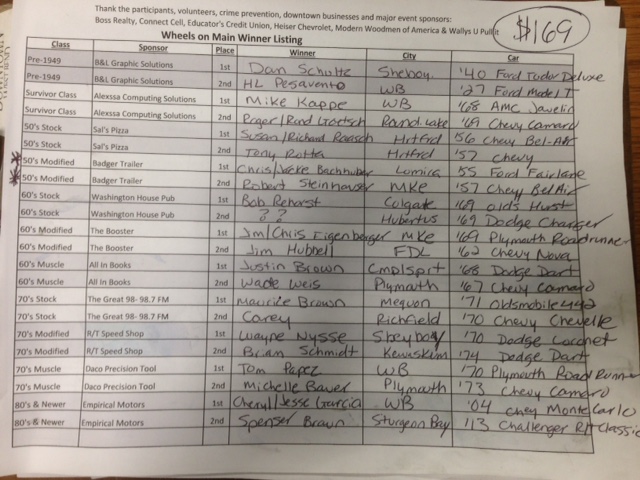 Thank the participants, volunteers, crime prevention, downtown businesses and major event sponsors:
Boss Realty, Connect Cell, Educator's Credit Union, Heiser Chevrolet, Modern Woodmen of America & Wallys U Pull it
$169
Wheels on Main Winner Listing
Class Sponsor Place Winner City Car
Pre-1949 B&L Graphic Solutions 1st Dan Schultz Sheboy. '40 Ford Tudor Deluxe
Pre-1949 B&L Graphic Solutions 2nd HL Pesavento WB '27 Ford Model T
Survivor Class Alexssa Computing Solutions 1st Mike Kappe WB '68 AMC Javelin
Survivor Class Alexssa Computing Solutions 2nd Roger/Rand Round Lake '69 Chevy Camaro
50's Stock Sal's Pizza 1st Susan/Richard Raasch Hrtfrd '56 Chevy Bel-Air
50's Stock Sal's Pizza 2nd Tony Rotta Hrtfrd '57 Chevy
50's Modified Badger Trailer 1st Chris/Jackie Bachhuber Lomira 55 Ford Fairlane
50's Modified Badger Trailer 2nd Robert Steinhauser MKE '57 Chevy BelAir
60's Stock Washington House Pub 1st Bob Rehorst Colgate '69 Olds Hurst
60's Stock Washington House Pub 2nd ? ? Hubertus '69 Dodge Charger
60's Modified The Booster 1st Jim/Chris Eigenberger MKE '69 Plymouth Roadrunner
60's Modified The Booster 2nd Jim Hubbell FDL '62 Chevy Nova
60's Muscle All In Books 1st Justin Brown Cmplsprt '68 Dodge Dart
60's Muscle All In Books 2nd Wade Weis Plymouth '67 Chevy Camaro
70's Stock The Great 98- 98.7 FM 1st Maurice Brown Mequon '71 Oldsmobile 442
70's Stock The Great 98- 98.7 FM 2nd Carey Richfield '70 Chevy Chevelle
70's Modified R/T Speed Shop 1st Wayne Nysse Sheyboy '70 Dodge Coronet
70's Modified R/T Speed Shop 2nd Brian Schmidt Kewaskum '74 Dodge Dart
70's Muscle Daco Precision Tool 1st Tom Papez WB '70 Plymouth Road Runner
70's Muscle Daco Precision Tool 2nd Michelle Bauer Plymouth '73 Chevy Camaro
80's & Newer Empirical Motors 1st Cheryl/Jesse Garcia WB '04 Chev Monte Carlo
80's & Newer Empirical Motors 2nd Spenser Braun Sturgeon Bay '13 Challenger R/T Classic